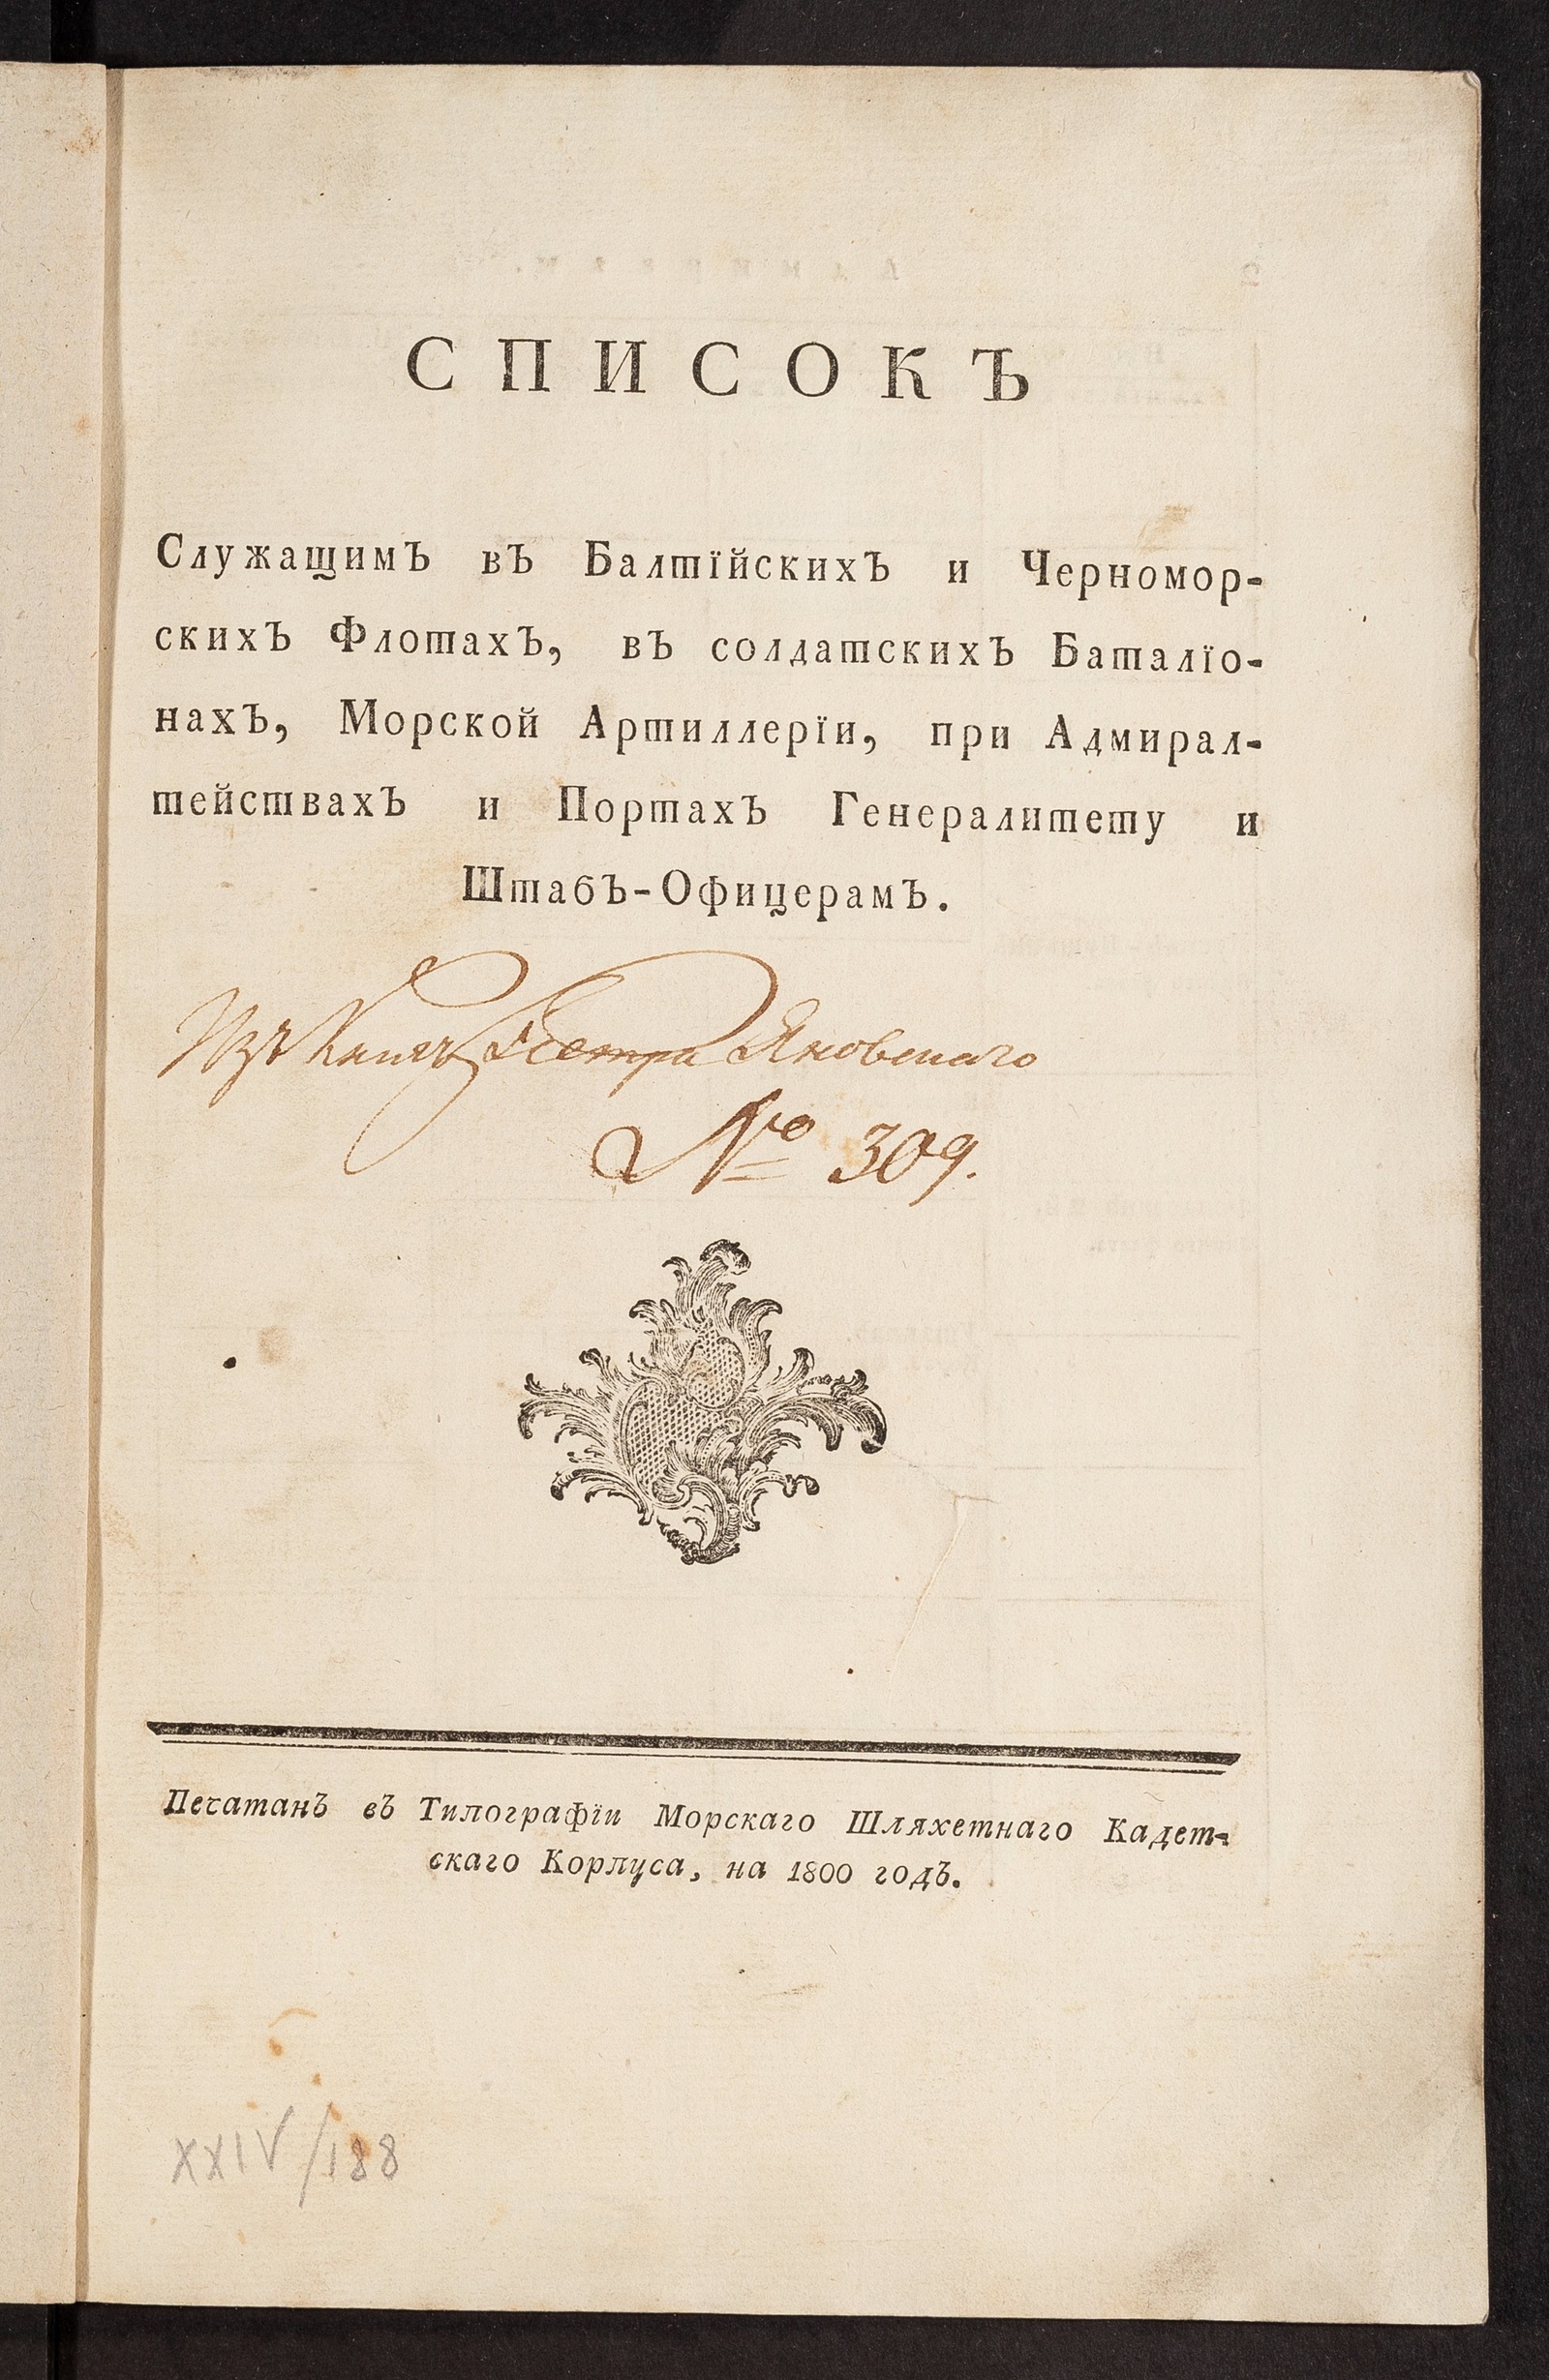 СПИСОКЪ
Служащимъ въ Балтїйскихъ и Черномор-
скихъ Флотахъ, въ солдатскихъ Баталїо-
нахъ, Морской Артиллерїи, при Адмирал-
тействахъ и Портахъ Генералитету и
Штабъ-Офицерамъ.
Изъ Книгъ Петра Яновскаго
№ 309.
Печатанъ въ Типографїи Морскаго Шляхетнаго Кадет-
скаго Корпуса, на 1800 годъ.
XXIV/188